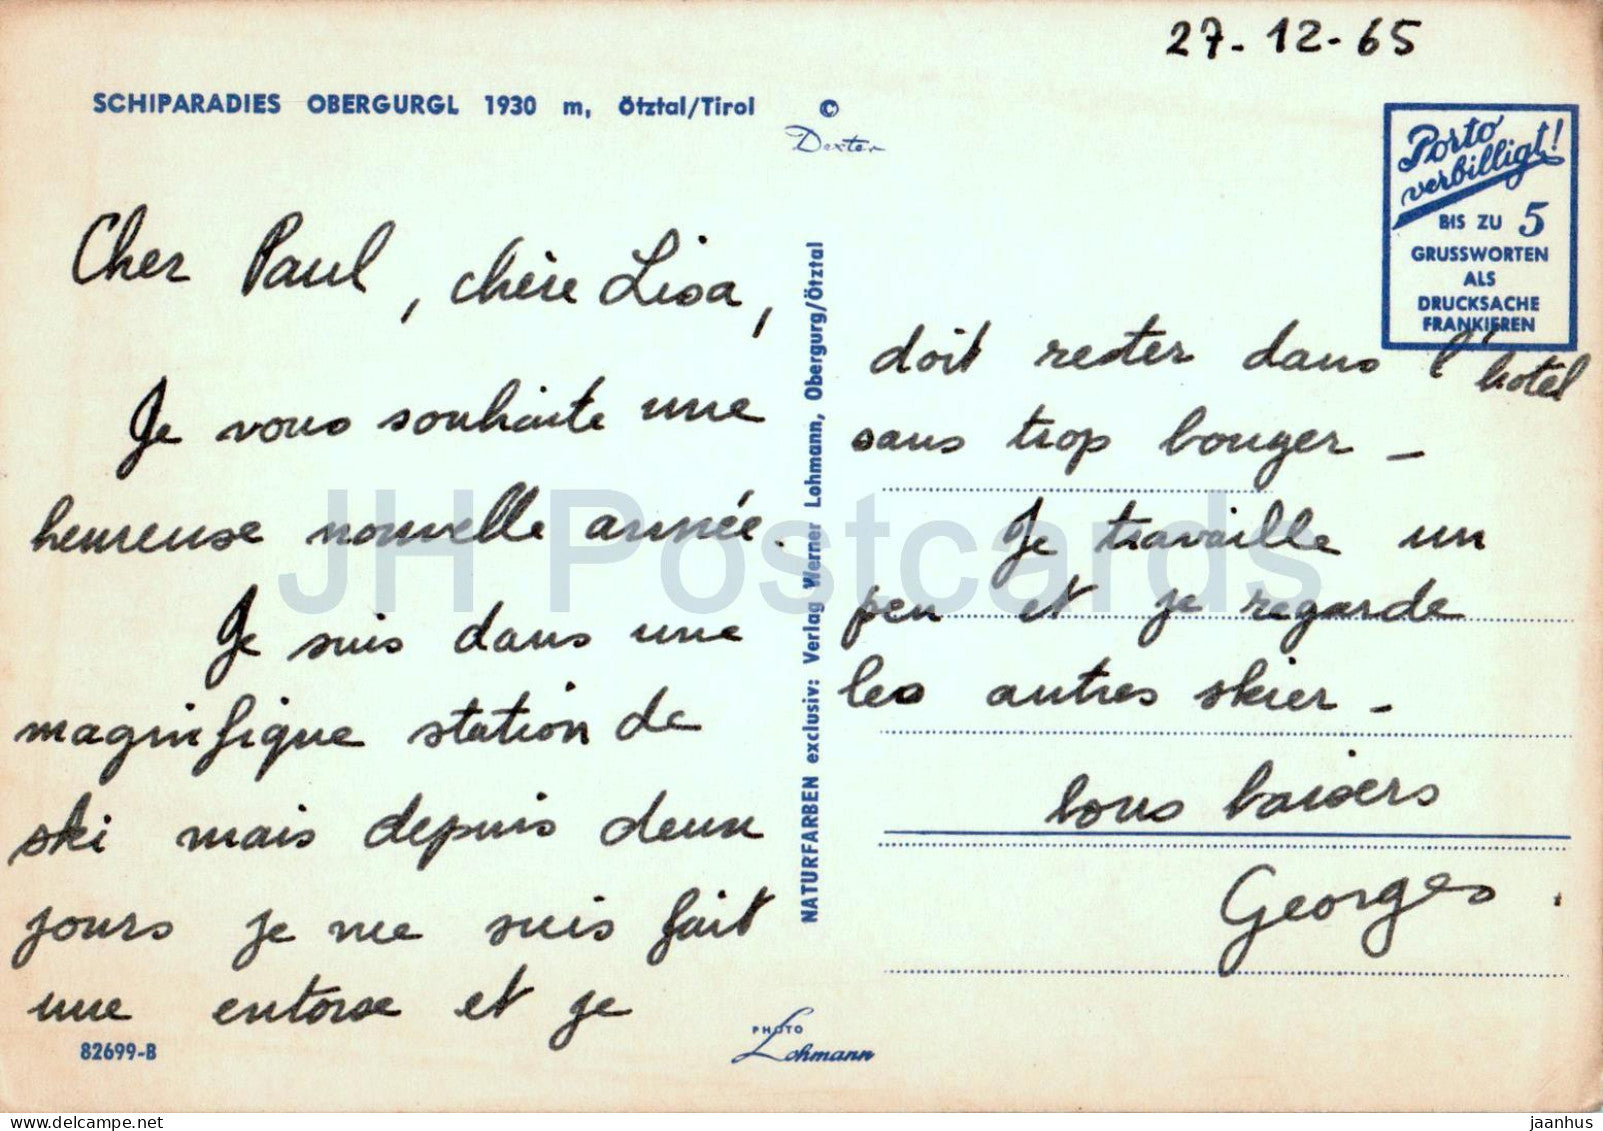 27-12-65
SCHIPARADIES OBERGURGL 1930 m, Ötztal/Tirol
©
Dexter
Porto
verbilligt!
BIS ZU 5
GRUSSWORTEN
ALS
DRUCKSACHE
FRANKIEREN
Cher Paul, chère Lisa,
Je vous souhaite une
heureuse nouvelle année.
Je suis dans une
magnifique station de
ski mais depuis deux
jours je me suis fait
une entorse et je
82699-B
NATURFARBEN exclusiv: Verlag Werner Lohmann, Obergurg/Ötztal
PHOTO
Lohmann
doit rester dans l'hotel
sans trop bouger -
Je travaille un
peu et je regarde
les autres skier -
bons baisers
Georges.
JH Postcards
jaanhus @ delcampe.net